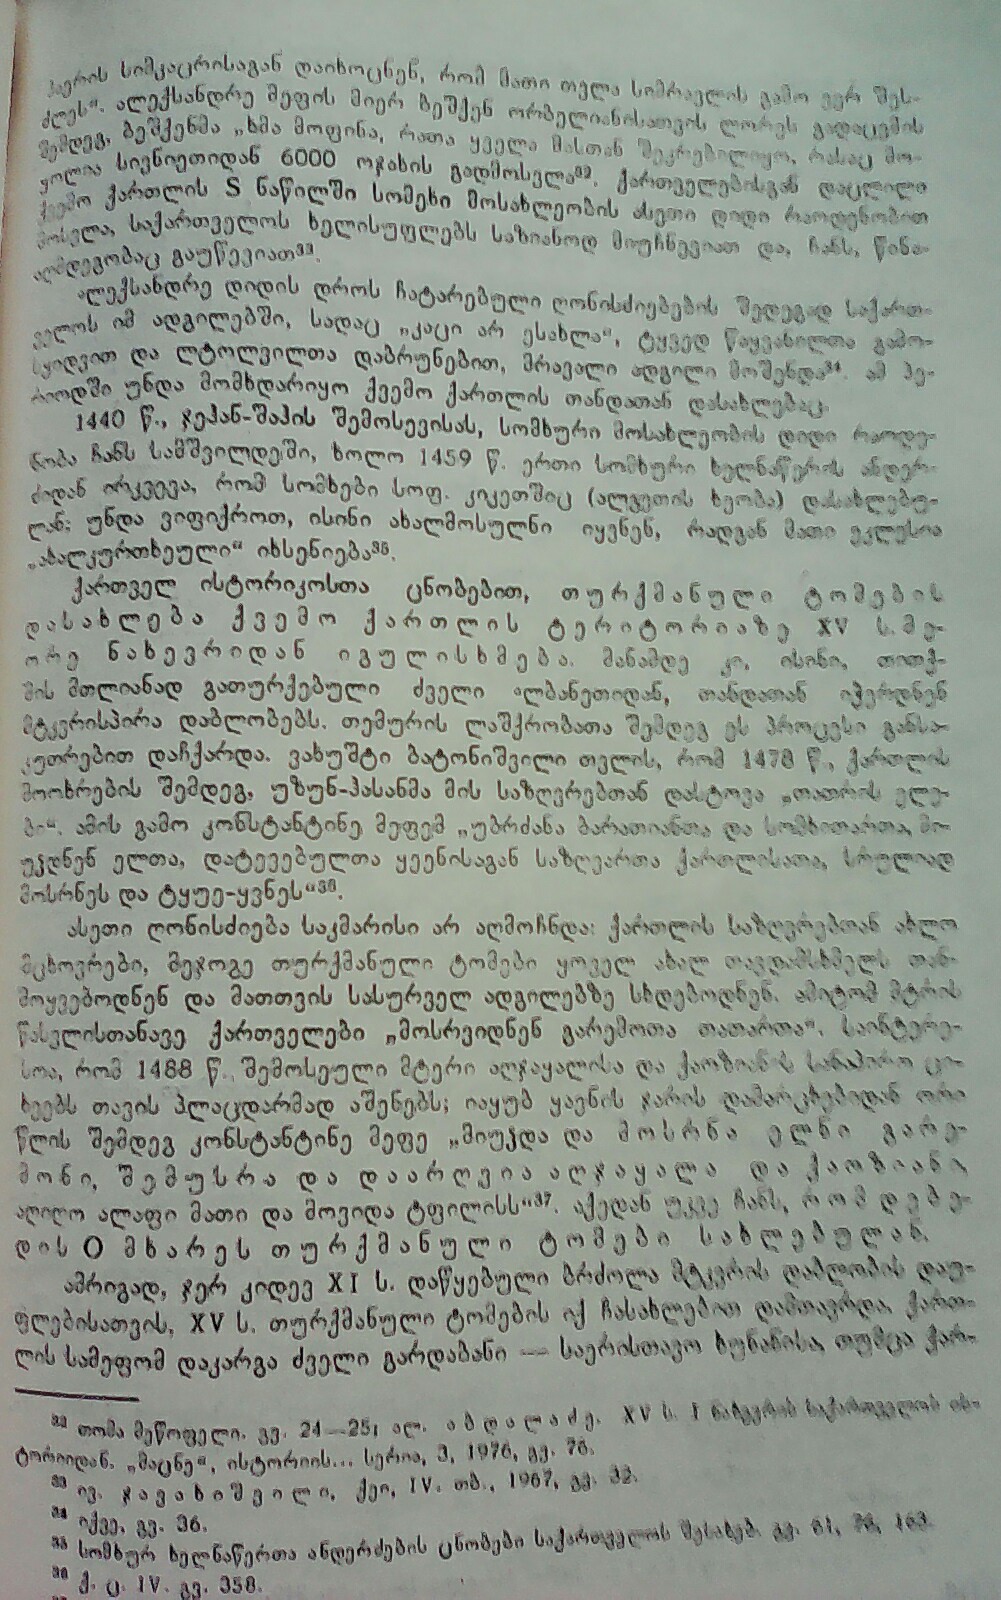 ჰაერის სიმკაცრისაგან დაიხოცნენ, რომ მათი თვლა სიმრავლის გამო ვერ შეს-
ძლეს“. ალექსანდრე მეფის მიერ ბეშქენ ორბელიანისათვის ლორეს გადაცემის
შემდეგ, ბეშქენმა „ხმა მოფინა, რათა ყველა მასთან შეკრებილიყო, რასაც მო-
ყოლია სივნიეთიდან 6000 ოჯახის გადმოსვლა³². ქართველებისგან დაცლილი
ქვემო ქართლის S ნაწილში სომეხი მოსახლეობის ასეთი დიდი რაოდენობით
მოსვლა, საქართველოს ხელისუფლებს საზიანოდ მიუჩნევიათ და, ჩანს, წინა-
აღმდეგობაც გაუწევიათ³³.
ალექსანდრე დიდის დროს ჩატარებული ღონისძიებების შედეგად საქართ-
ველოს იმ ადგილებში, სადაც „კაცი არ ესახლა“, ტყვედ წაყვანილთა გამო-
სყიდვით და ლტოლვილთა დაბრუნებით, მრავალი ადგილი მოშენდა³⁴. ამ პე-
რიოდში უნდა მომხდარიყო ქვემო ქართლის თანდათან დასახლებაც.
1440 წ., ჯეჰან-შაჰის შემოსევისას, სომხური მოსახლეობის დიდი რაოდე-
ნობა ჩანს სამშვილდეში, ხოლო 1459 წ. ერთი სომხური ხელნაწერის ანდერ-
ძიდან ირკვევა, რომ სომხები სოფ. კიკეთშიც (ალგეთის ხეობა) დასახლებუ-
ლან; უნდა ვიფიქროთ, ისინი ახალმოსულნი იყვნენ, რადგან მათი ეკლესია
„ახალკურთხეული“ იხსენიება³⁵.
ქართველ ისტორიკოსთა ცნობებით, თურქმანული ტომების
დასახლება ქვემო ქართლის ტერიტორიაზე XV ს. მე-
ორე ნახევრიდან იგულისხმება. მანამდე კი, ისინი, თითქ-
მის მთლიანად გათურქებული ძველი ალბანეთიდან, თანდათან იჭერდნენ
მტკვრისპირა დაბლობებს. თემურის ლაშქრობათა შემდეგ ეს პროცესი განსა-
კუთრებით დაჩქარდა. ვახუშტი ბატონიშვილი თვლის, რომ 1478 წ., ქართლის
მოოხრების შემდეგ, უზუნ-ჰასანმა მის საზღვრებთან დასტოვა „თათრის ელე-
ბი“. ამის გამო კონსტანტინე მეფემ „უბრძანა ბარათიანთა და სომხითართა, მი-
უჴდნენ ელთა, დატევებულთა ყეენისაგან საზღვართა ქართლისათა, სრულიად
მოსრნეს და ტყუე-ყვნეს“³⁶.
ასეთი ღონისძიება საკმარისი არ აღმოჩნდა: ქართლის საზღვრებთან ახლო
მცხოვრები, მეჯოგე თურქმანული ტომები ყოველ ახალ თავდამსხმელს თან-
მოყვებოდნენ და მათთვის სასურველ ადგილებზე სხდებოდნენ. ამიტომ მტრის
წასვლისთანავე ქართველები „მოსრვიდნენ გარემოთა თათართა“. საინტერე-
სოა, რომ 1488 წ. შემოსეული მტერი აღჯაყალისა და ქაოზიანის სანაპირო ცი-
ხეებს თავის პლაცდარმად აშენებს; იაყუბ ყაენის ჯარის დამარცხებიდან ორი
წლის შემდეგ კონსტანტინე მეფე „მიუჴდა და მოსრნა ელნი გარე-
მონი, შემუსრა და დაარღვია აღჯაყალა და ქაოზიანი,
აღიღო ალაფი მათი და მოვიდა ტფილისს“³⁷. აქედან უკვე ჩანს, რომ დებე-
დის O მხარეს თურქმანული ტომები სახლებულან.
ამრიგად, ჯერ კიდევ XI ს. დაწყებული ბრძოლა მტკვრის დაბლობის დაუ-
ფლებისათვის, XV ს. თურქმანული ტომების იქ ჩასახლებით დამთავრდა. ქართ-
ლის სამეფომ დაკარგა ძველი გარდაბანი — საერისთავო ხუნანისა, თუმცა ქარ-
³² თომა მეწოფელი. გვ. 24—25; ალ. აბდალაძე. XV ს. I ნახევრის საქართველოს ის-
ტორიიდან. „მაცნე“, ისტორიის... სერია, 3, 1976, გვ. 76.
³³ ივ. ჯავახიშვილი, ქეი, IV. თბ., 1967, გვ. 32.
³⁴ იქვე, გვ. 36.
³⁵ სომხურ ხელნაწერთა ანდერძების ცნობები საქართველოს შესახებ. გვ. 61, 163.
³⁶ ქ. ც. IV. გვ. 358.